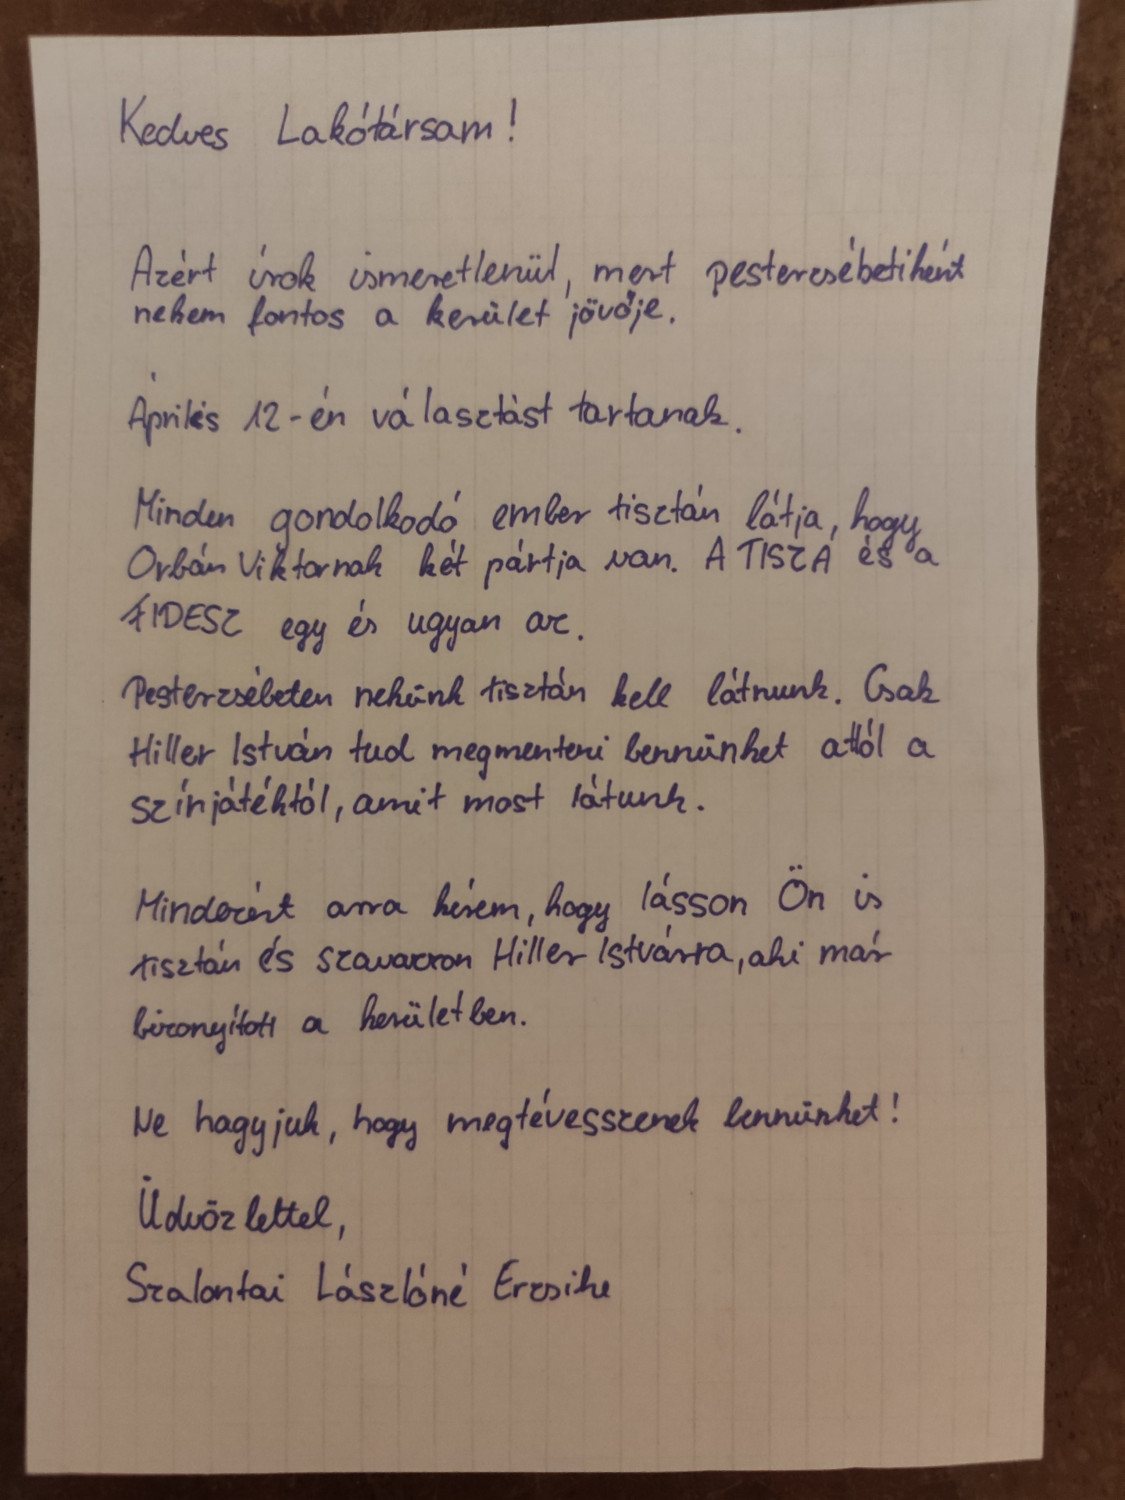 Kedves Lakótársam!
Azért írok ismeretlenül, mert pesterzsébetiként
nekem fontos a kerület jövője.
Április 12-én választást tartanak.
Minden gondolkodó ember tisztán látja, hogy
Orbán Viktornak két pártja van. A TISZA és a
FIDESZ egy és ugyan az.
Pesterzsébeten nekünk tisztán kell látnunk. Csak
Hiller István tud megmenteni bennünket attól a
színjátéktól, amit most látunk.
Mindezért arra kérem, hogy lásson Ön is
tisztán és szavazzon Hiller Istvánra, aki már
bizonyított a kerületben.
Ne hagyjuk, hogy megtévesszenek bennünket!
Üdvözlettel,
Szalontai Lászlóné Erzsike